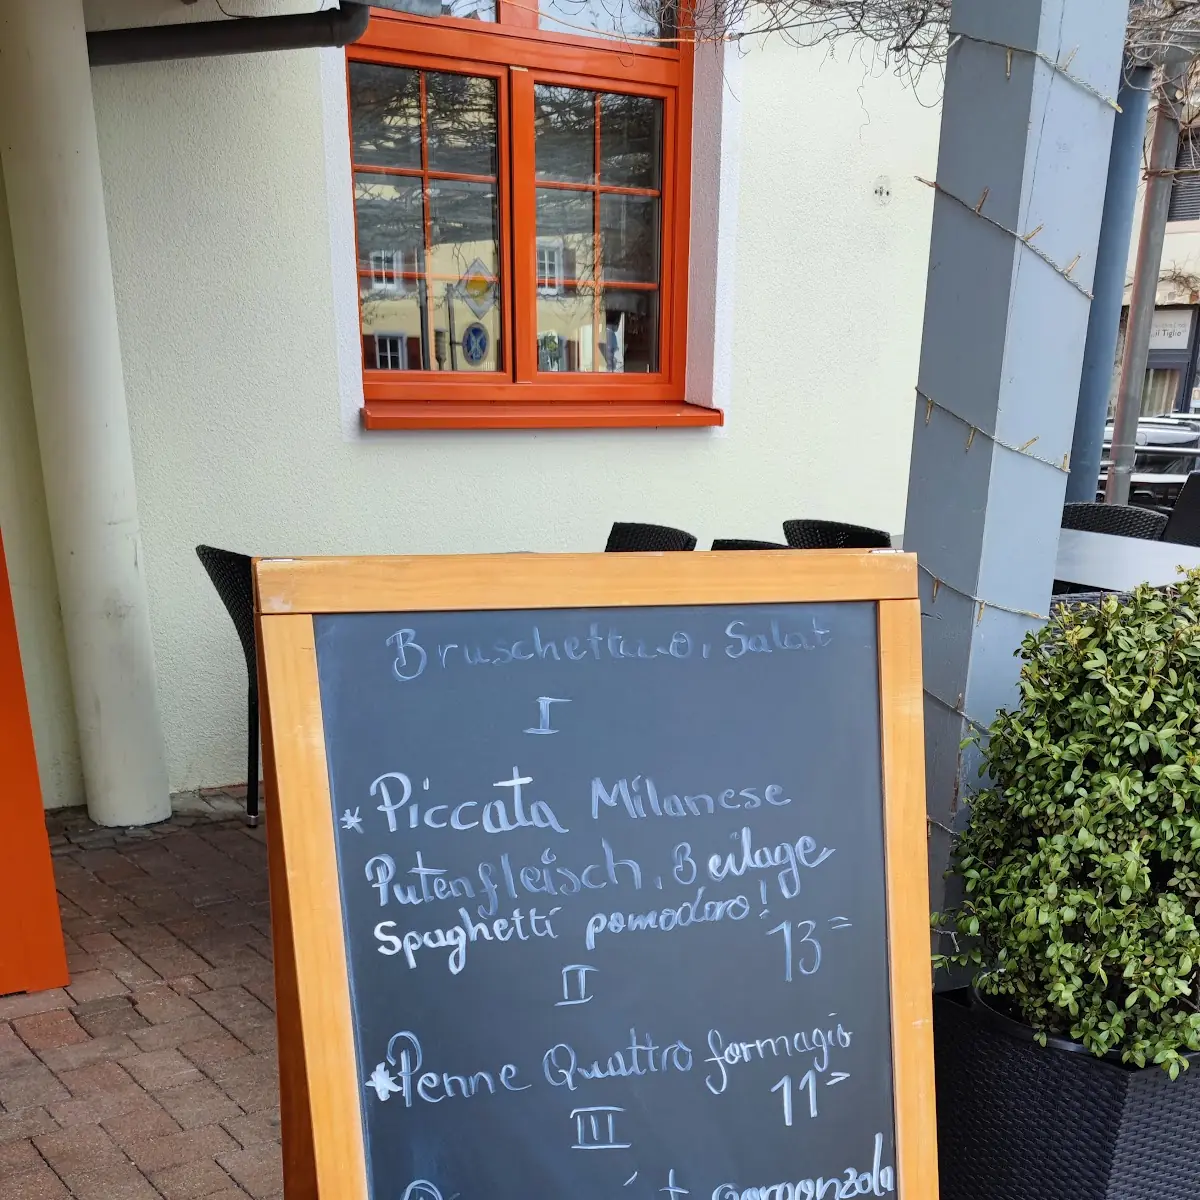 Salat
I
* Piccata Milanese
Putenfleisch, Beilage
Spaghetti pomodoro!
13=
II
* Penne Quattro formagio
11=
III
gorgonzola
il Tiglio